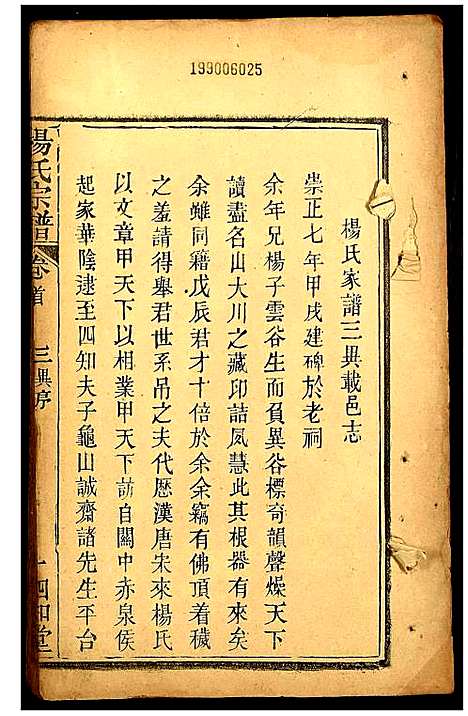 199006025
楊氏家譜三異載邑志
崇正七年甲戌建碑於老祠
余年兄楊子雲谷生而負異谷標奇韻聲燥天下
讀盡名山大川之藏印詰夙慧此其根器有來矣
余雖同籍戊辰君才十倍於余余竊有佛頂着穢
之羞請得舉君世系吊之夫代歷漢唐宋來楊氏
以文章甲天下以相業甲天下訪自關中赤泉侯
起家華陰逮至四知夫子龜山誠齋諸先生平台
楊氏宗譜
卷首
三異序
一
四知堂